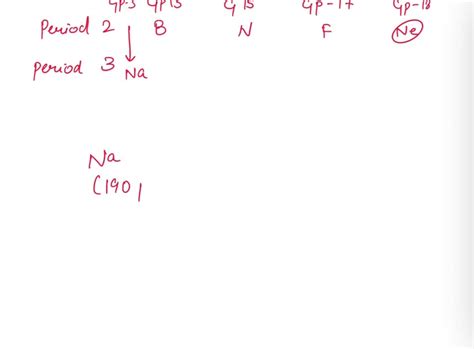 Gp 13 G 15 Gp-17 Gp-18
Period 2 B N F Ne
Period 3 Na
Na
(190